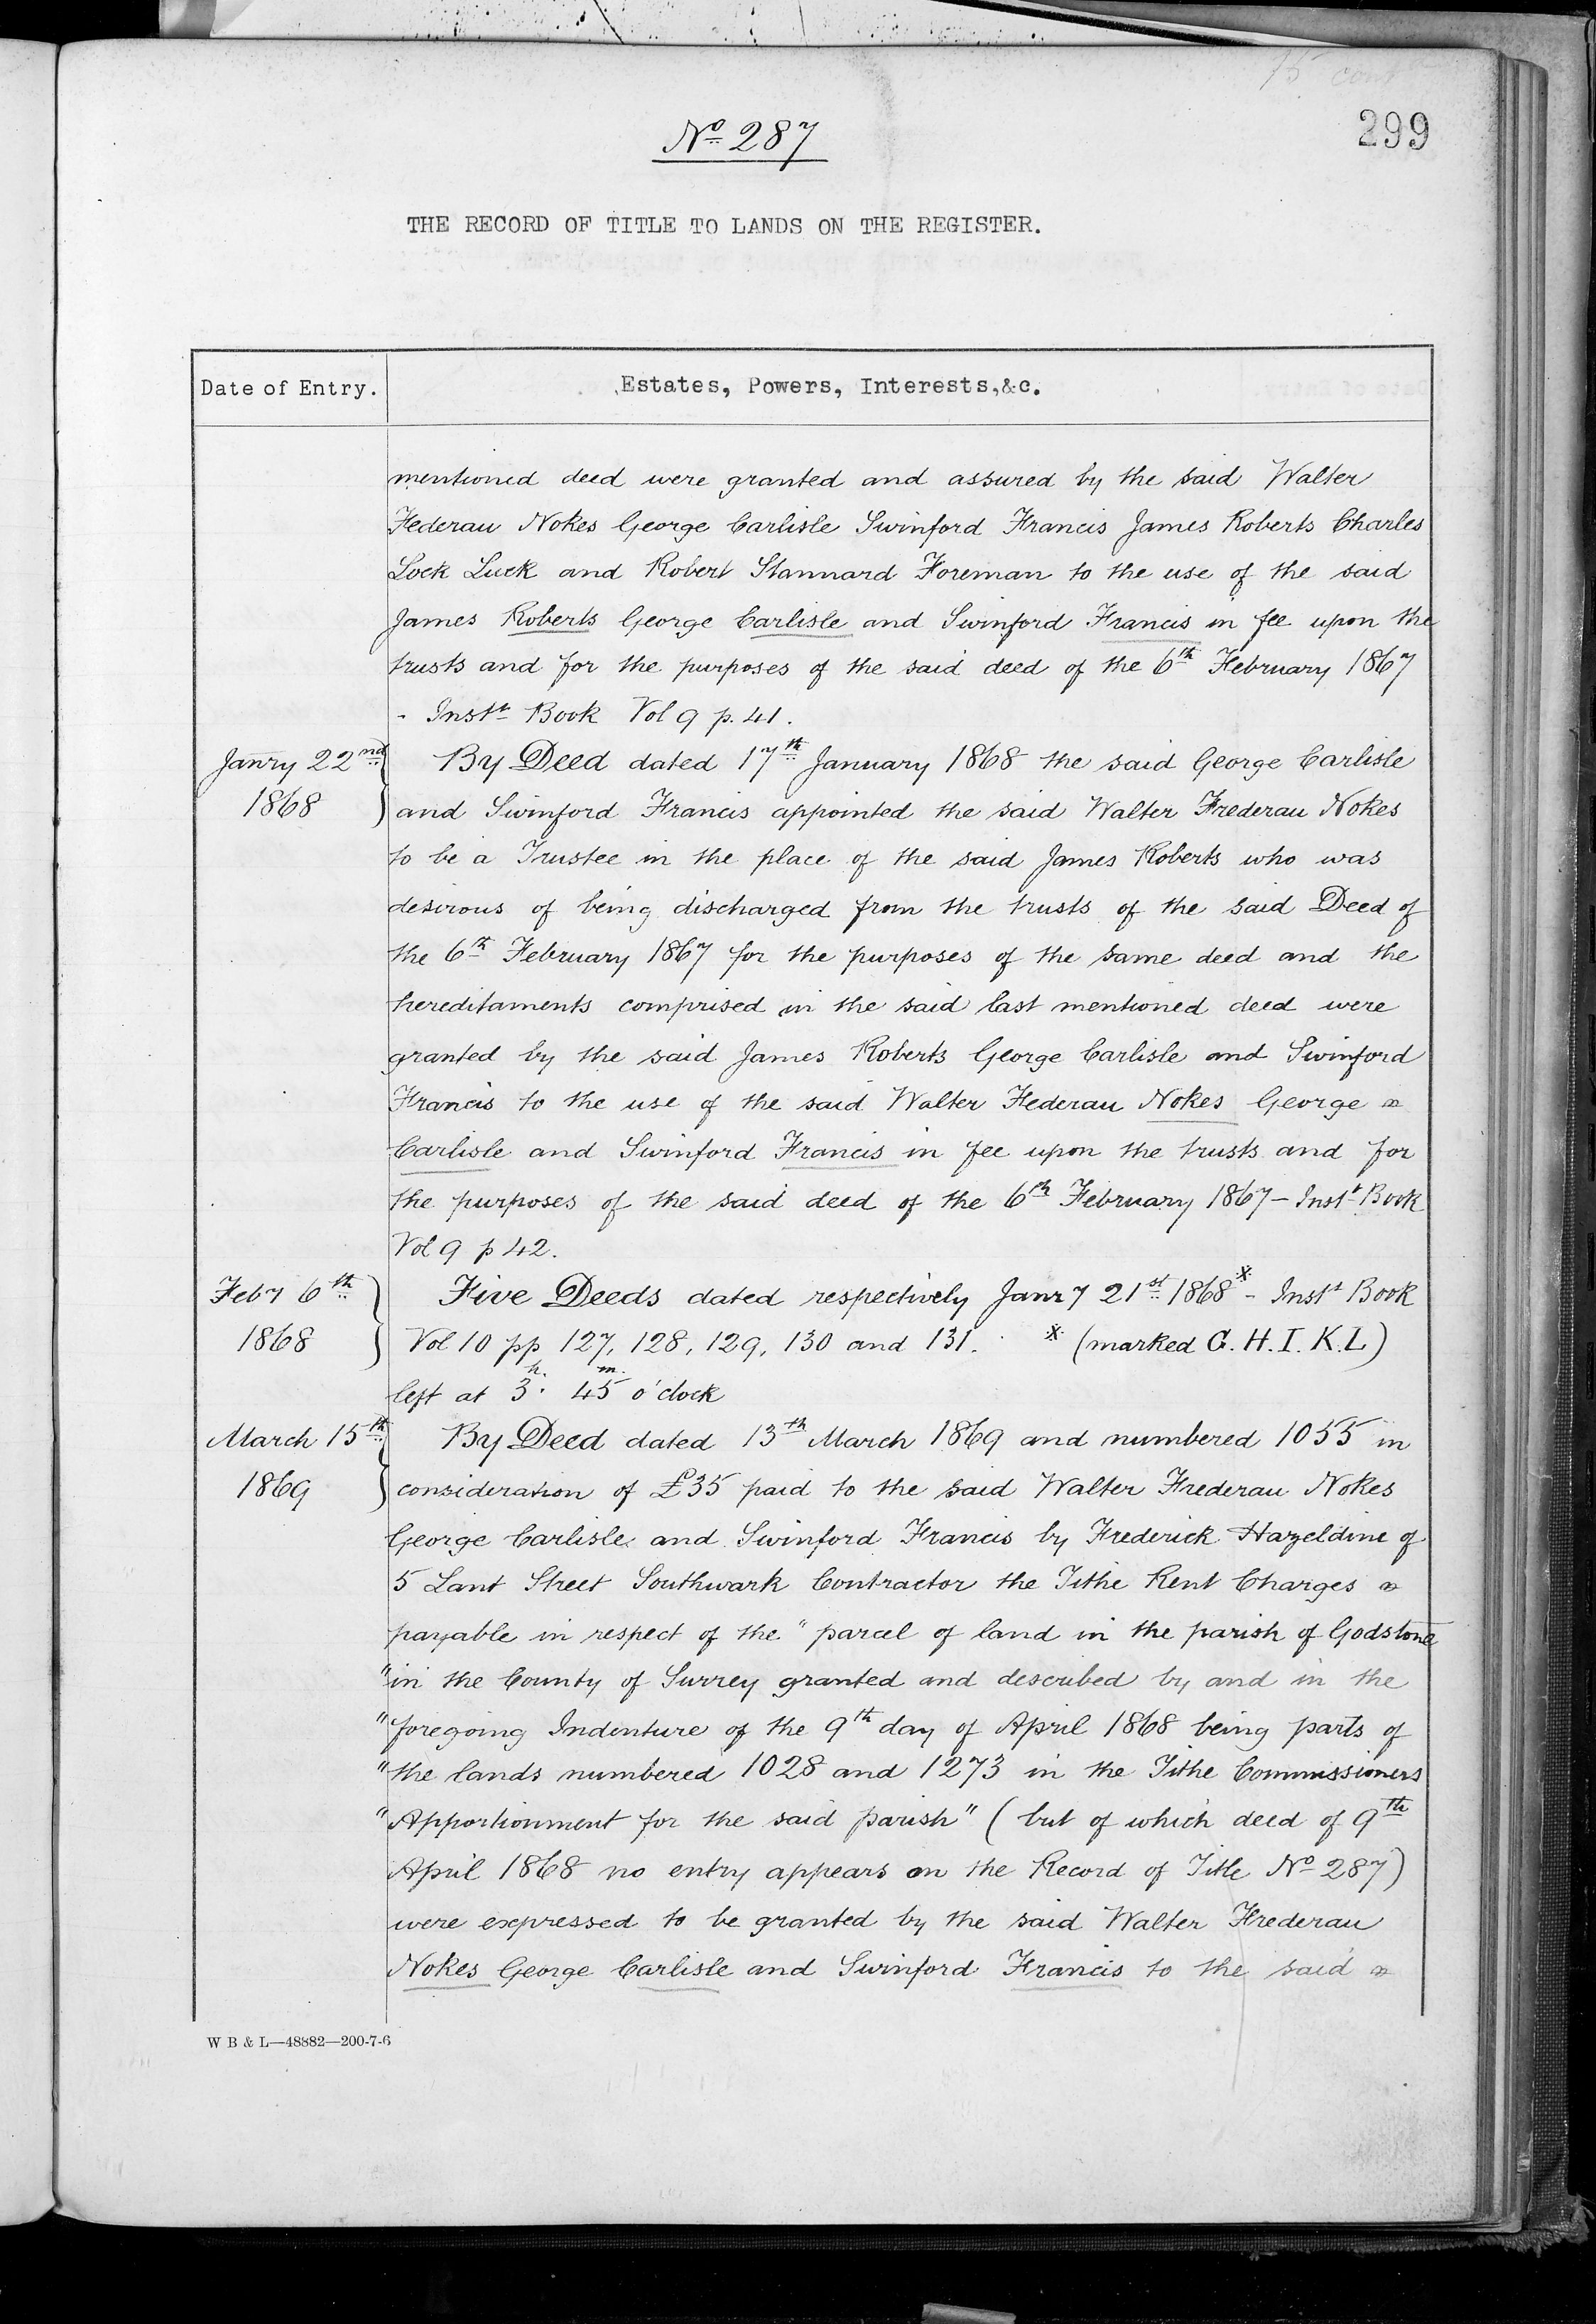 75 cont
299
No 287
THE RECORD OF TITLE TO LANDS ON THE REGISTER.
Date of Entry.
Estates, Powers, Interests,&c.
mentioned deed were granted and assured by the said Walter
Federau Nokes George Carlisle Swinford Francis James Roberts Charles
Lock Luck and Robert Stannard Foreman to the use of the said
James Roberts George Carlisle and Swinford Francis in fee upon the
trusts and for the purposes of the said deed of the 6th February 1867
- Instt Book Vol 9 p. 41.
Janry 22nd
1868
By Deed dated 17th January 1868 the said George Carlisle
and Swinford Francis appointed the said Walter Frederau Nokes
to be a Trustee in the place of the said James Roberts who was
desirous of being discharged from the trusts of the said Deed of
the 6th February 1867 for the purposes of the same deed and the
hereditaments comprised in the said last mentioned deed were
granted by the said James Roberts George Carlisle and Swinford
Francis to the use of the said Walter Federau Nokes George
Carlisle and Swinford Francis in fee upon the trusts and for
the purposes of the said deed of the 6th February 1867 - Instt Book
Vol 9 p 42.
Feby 6th
1868
Five Deeds dated respectively Janry 21st 1868* - Instt Book
Vol 10 pp 127, 128, 129, 130 and 131. * (marked G. H. I. K. L)
left at 3h. 45m. o'clock
March 15th
1869
By Deed dated 13th March 1869 and numbered 1055 in
consideration of £35 paid to the said Walter Frederau Nokes
George Carlisle and Swinford Francis by Frederick Hazeldine of
5 Lant Street Southwark Contractor the Tithe Rent Charges
payable in respect of the "parcel of land in the parish of Godstone
"in the County of Surrey granted and described by and in the
"foregoing Indenture of the 9th day of April 1868 being parts of
"the lands numbered 1028 and 1273 in the Tithe Commissioners
"Apportionment for the said parish" (but of which deed of 9th
April 1868 no entry appears on the Record of Title No 287)
were expressed to be granted by the said Walter Frederau
Nokes George Carlisle and Swinford Francis to the said
W B & L—48882—200-7-6